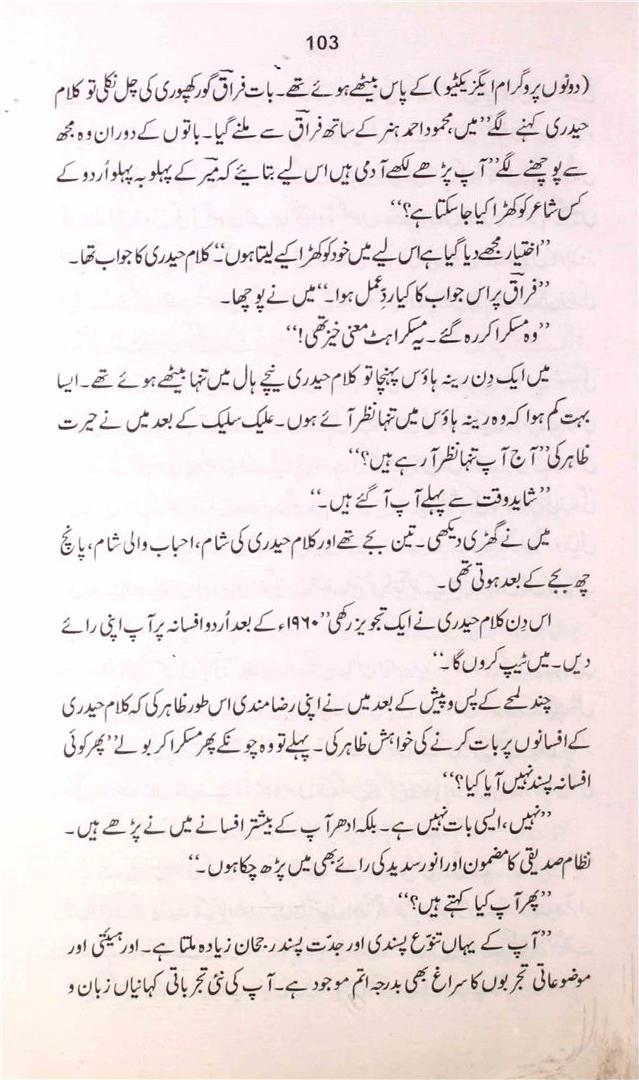 103
(دونوں پروگرام ایگزیکٹیو) کے پاس بیٹھے ہوئے تھے۔ بات فراقؔ گورکھپوری کی چل نکلی تو کلام
حیدری کہنے لگے ’’میں، محمود احمد ہنر کے ساتھ فراقؔ سے ملنے گیا۔ باتوں کے دوران وہ مجھ
سے پوچھنے لگے ’’آپ پڑھے لکھے آدمی ہیں اس لیے بتائیے کہ میرؔ کے پہلو بہ پہلو اُردو کے
کس شاعر کو کھڑا کیا جاسکتا ہے؟‘‘
’’اختیار مجھے دیا گیا ہے اس لیے میں خود کو کھڑا کیے لیتا ہوں‘‘۔ کلام حیدری کا جواب تھا۔
’’فراقؔ پر اس جواب کا کیا ردِّ عمل ہوا۔‘‘ میں نے پوچھا۔
’’وہ مسکرا کر رہ گئے۔ یہ مسکراہٹ معنی خیز تھی!‘‘
میں ایک دِن رینہ ہاؤس پہنچا تو کلام حیدری نیچے ہال میں تنہا بیٹھے ہوئے تھے۔ ایسا
بہت کم ہوا کہ وہ رینہ ہاؤس میں تنہا نظر آئے ہوں۔ علیک سلیک کے بعد میں نے حیرت
ظاہر کی ’’آج آپ تنہا نظر آرہے ہیں؟‘‘
’’شاید وقت سے پہلے آپ آگئے ہیں۔‘‘
میں نے گھڑی دیکھی۔ تین بجے تھے اور کلام حیدری کی شام، احباب والی شام، پانچ
چھ بجے کے بعد ہوتی تھی۔
اس دِن کلام حیدری نے ایک تجویز رکھی ’’۱۹۶۰ء کے بعد اُردو افسانہ پر آپ اپنی رائے
دیں۔ میں ٹیپ کروں گا۔‘‘
چند لمحے کے پس و پیش کے بعد میں نے اپنی رضا مندی اس طور ظاہر کی کہ کلام حیدری
کے افسانوں پر بات کرنے کی خواہش ظاہر کی۔ پہلے تو وہ چونکے پھر مسکرا کر بولے ’’پھر کوئی
افسانہ پسند نہیں آیا کیا؟‘‘
’’نہیں، ایسی بات نہیں ہے۔ بلکہ ادھر آپ کے بیشتر افسانے میں نے پڑھے ہیں۔
نظام صدیقی کا مضمون اور انور سدید کی رائے بھی میں پڑھ چکا ہوں۔‘‘
’’پھر آپ کیا کہتے ہیں؟‘‘
’’آپ کے یہاں تنوّع پسندی اور جدّت پسند رجحان زیادہ ملتا ہے۔ اور ہیئتی اور
موضوعاتی تجربوں کا سراغ بھی بدرجہ اتم موجود ہے۔ آپ کی نئی تجرباتی کہانیاں زبان و